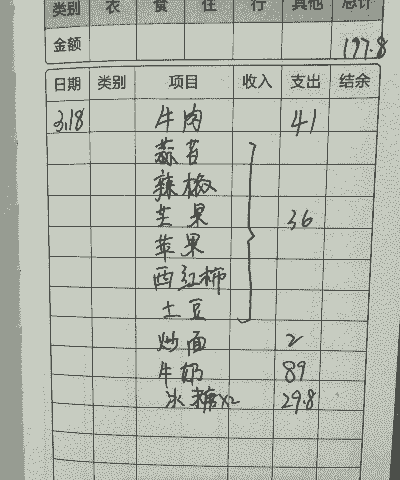 类别 衣 食 住 行 其他 总计
金额 197.8
日期 类别 项目 收入 支出 结余
3.18 牛肉 41
蒜苔
辣椒
芒果 36
苹果
西红柿
土豆
炒面 2
牛奶 89
冰糖x2 29.8